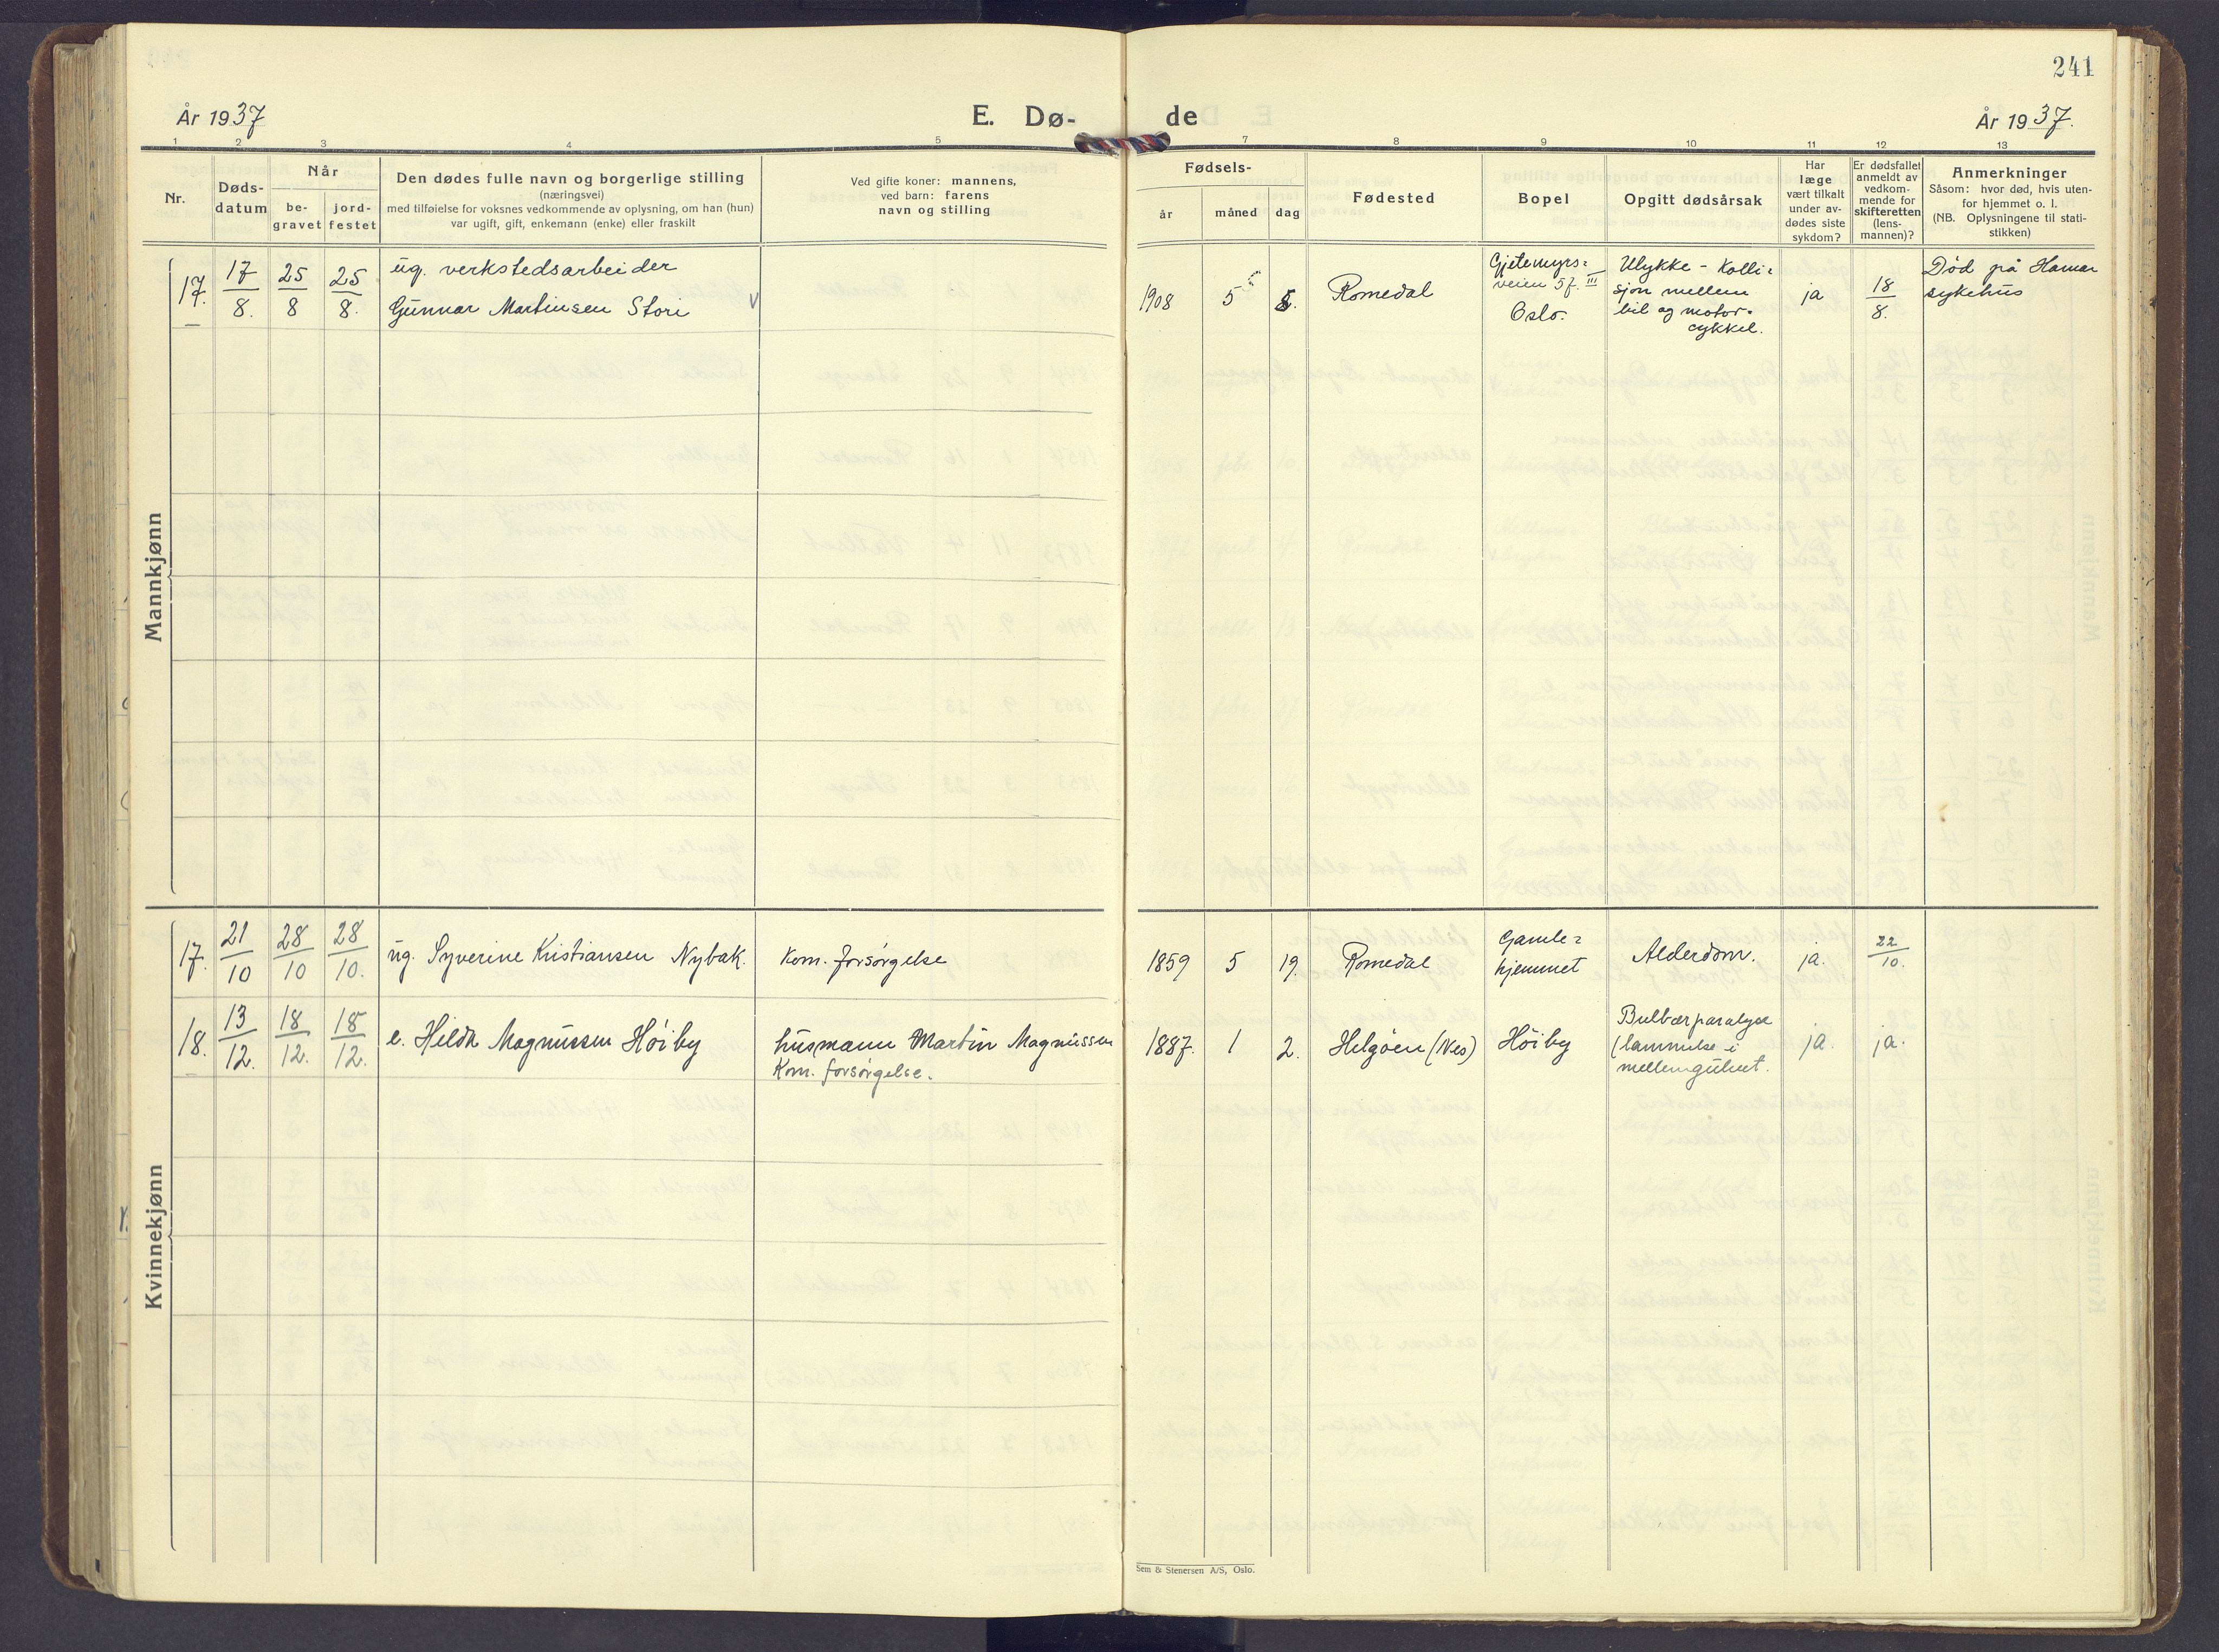 241
År 1937
E. Dø-
de
År 1937.
1 2 3 4 5 7 8 9 10 11 12 13
Nr.
Døds-
datum
Når
be-
gravet
jord-
festet
Den dødes fulle navn og borgerlige stilling
(næringsvei)
med tilføielse for voksnes vedkommende av oplysning, om han (hun)
var ugift, gift, enkemann (enke) eller fraskilt
Ved gifte koner: mannens,
ved barn: farens
navn og stilling
Fødsels-
år måned dag
Fødested
Bopel
Opgitt dødsårsak
Har
læge
vært tilkalt
under av-
dødes siste
sykdom?
Er dødsfallet
anmeldt av
vedkom-
mende for
skifteretten
(lens-
mannen)?
Anmerkninger
Såsom: hvor død, hvis uten-
for hjemmet o. l.
(NB. Oplysningene til stati-
stikken)
Mannkjønn
17. 17/8. 25/8 25/8.
ug. verkstedsarbeider
Gunnar Martinsen Stori V
1908 5 5. Romedal
Gjetemyrs=
veien 57. III
Oslo.
Ulykke - Kolli=
sjon mellem
bil og motor-
cykkel.
ja
18/8.
Død på Hamar
sykehus
Kvinnekjønn
17. 21/10 28/10 28/10.
ug. Syverine Kristiansen Nybak.
Kom. forsørgelse
1859 5 19. Romedal
Gamle=
hjemmet
Alderdom.
ja.
22/10.
18. 13/12. 18/12. 18/12.
e. Hilda Magnussen Höiby
husmann Martin Magnussen
Kom. forsørgelse.
1887. 1 2. Helgöen (Nes)
Höiby
Bulbærparalyse
(lammelse i
mellemgulvet.
ja.
ja.
Sem & Stenersen A/S, Oslo.